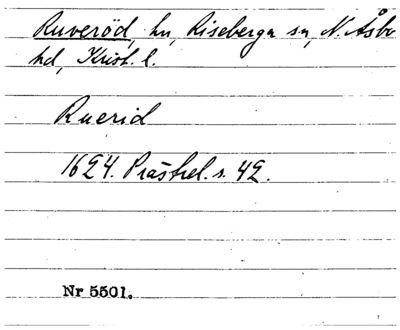 Ruveröd, hu, Riseberga sn, N. Åsbo
hd, Krist. l.
Ruerid
1624. Prästrel. s. 42.
Nr 5501.